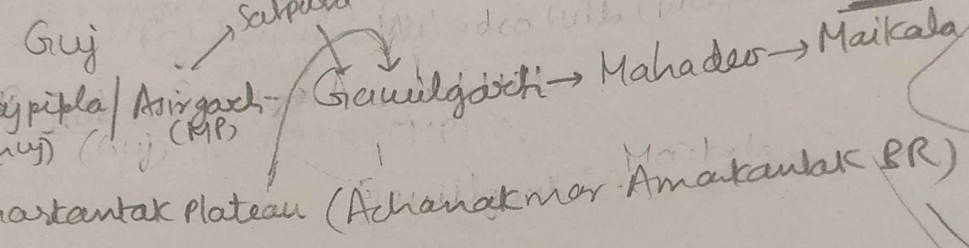 Satpura
Guj
ajpipla / Asirgarh - Gawilgarh → Mahadeo → Maikala
(MP)
arkantak Plateau (Achanakmar Amarkantak BR)